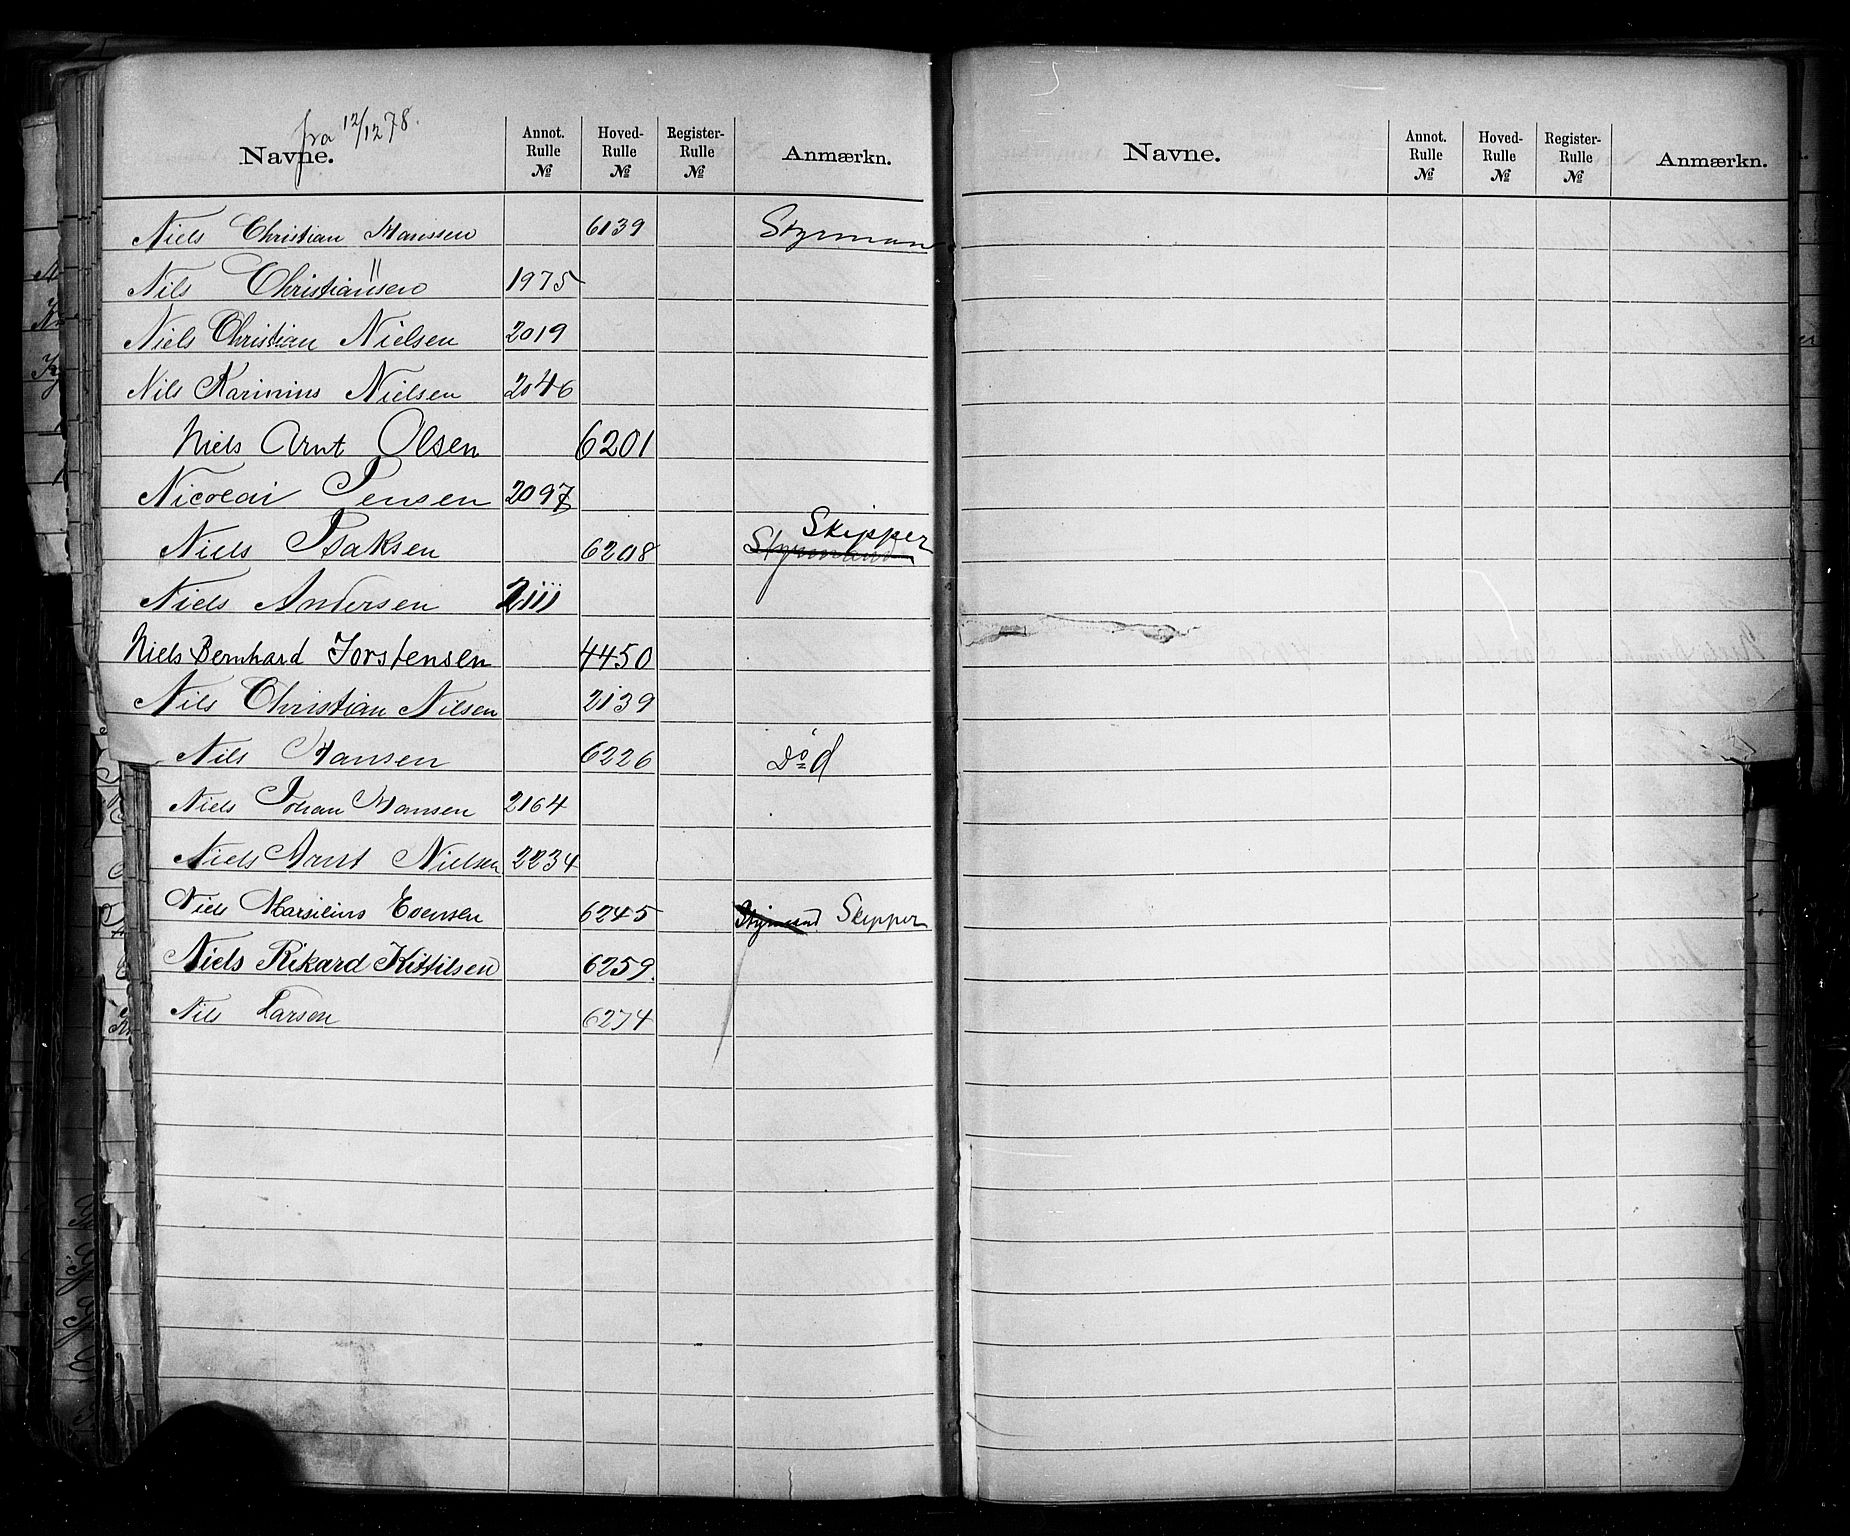 fra 12/12 78.
Navne. Annot. Rulle № Hoved-Rulle № Register-Rulle № Anmærkn.
Niels Christian Hanssen 6139 Styrman
Nils Christiansen 1975
Niels Christian Nielsen 2019
Nils Karinius Nielsen 2046
Niels Arnt Olsen 6201
Nicolai Jensen 2097
Skipper
Niels Isaksen 6208 Styrmand
Niels Andersen 2111
Niels Bernhard Torstensen 4450
Nils Christian Nilsen 2139
Nils Hansen 6226 Død
Niels Johan Hansen 2164
Niels Arnt Nielsen 2234
Niels Marsilius Evensen 6245 Styrmand Skipper
Niels Rikard Kittilsen 6259.
Nils Larsen 6274
Navne. Annot. Rulle № Hoved-Rulle № Register-Rulle № Anmærkn.